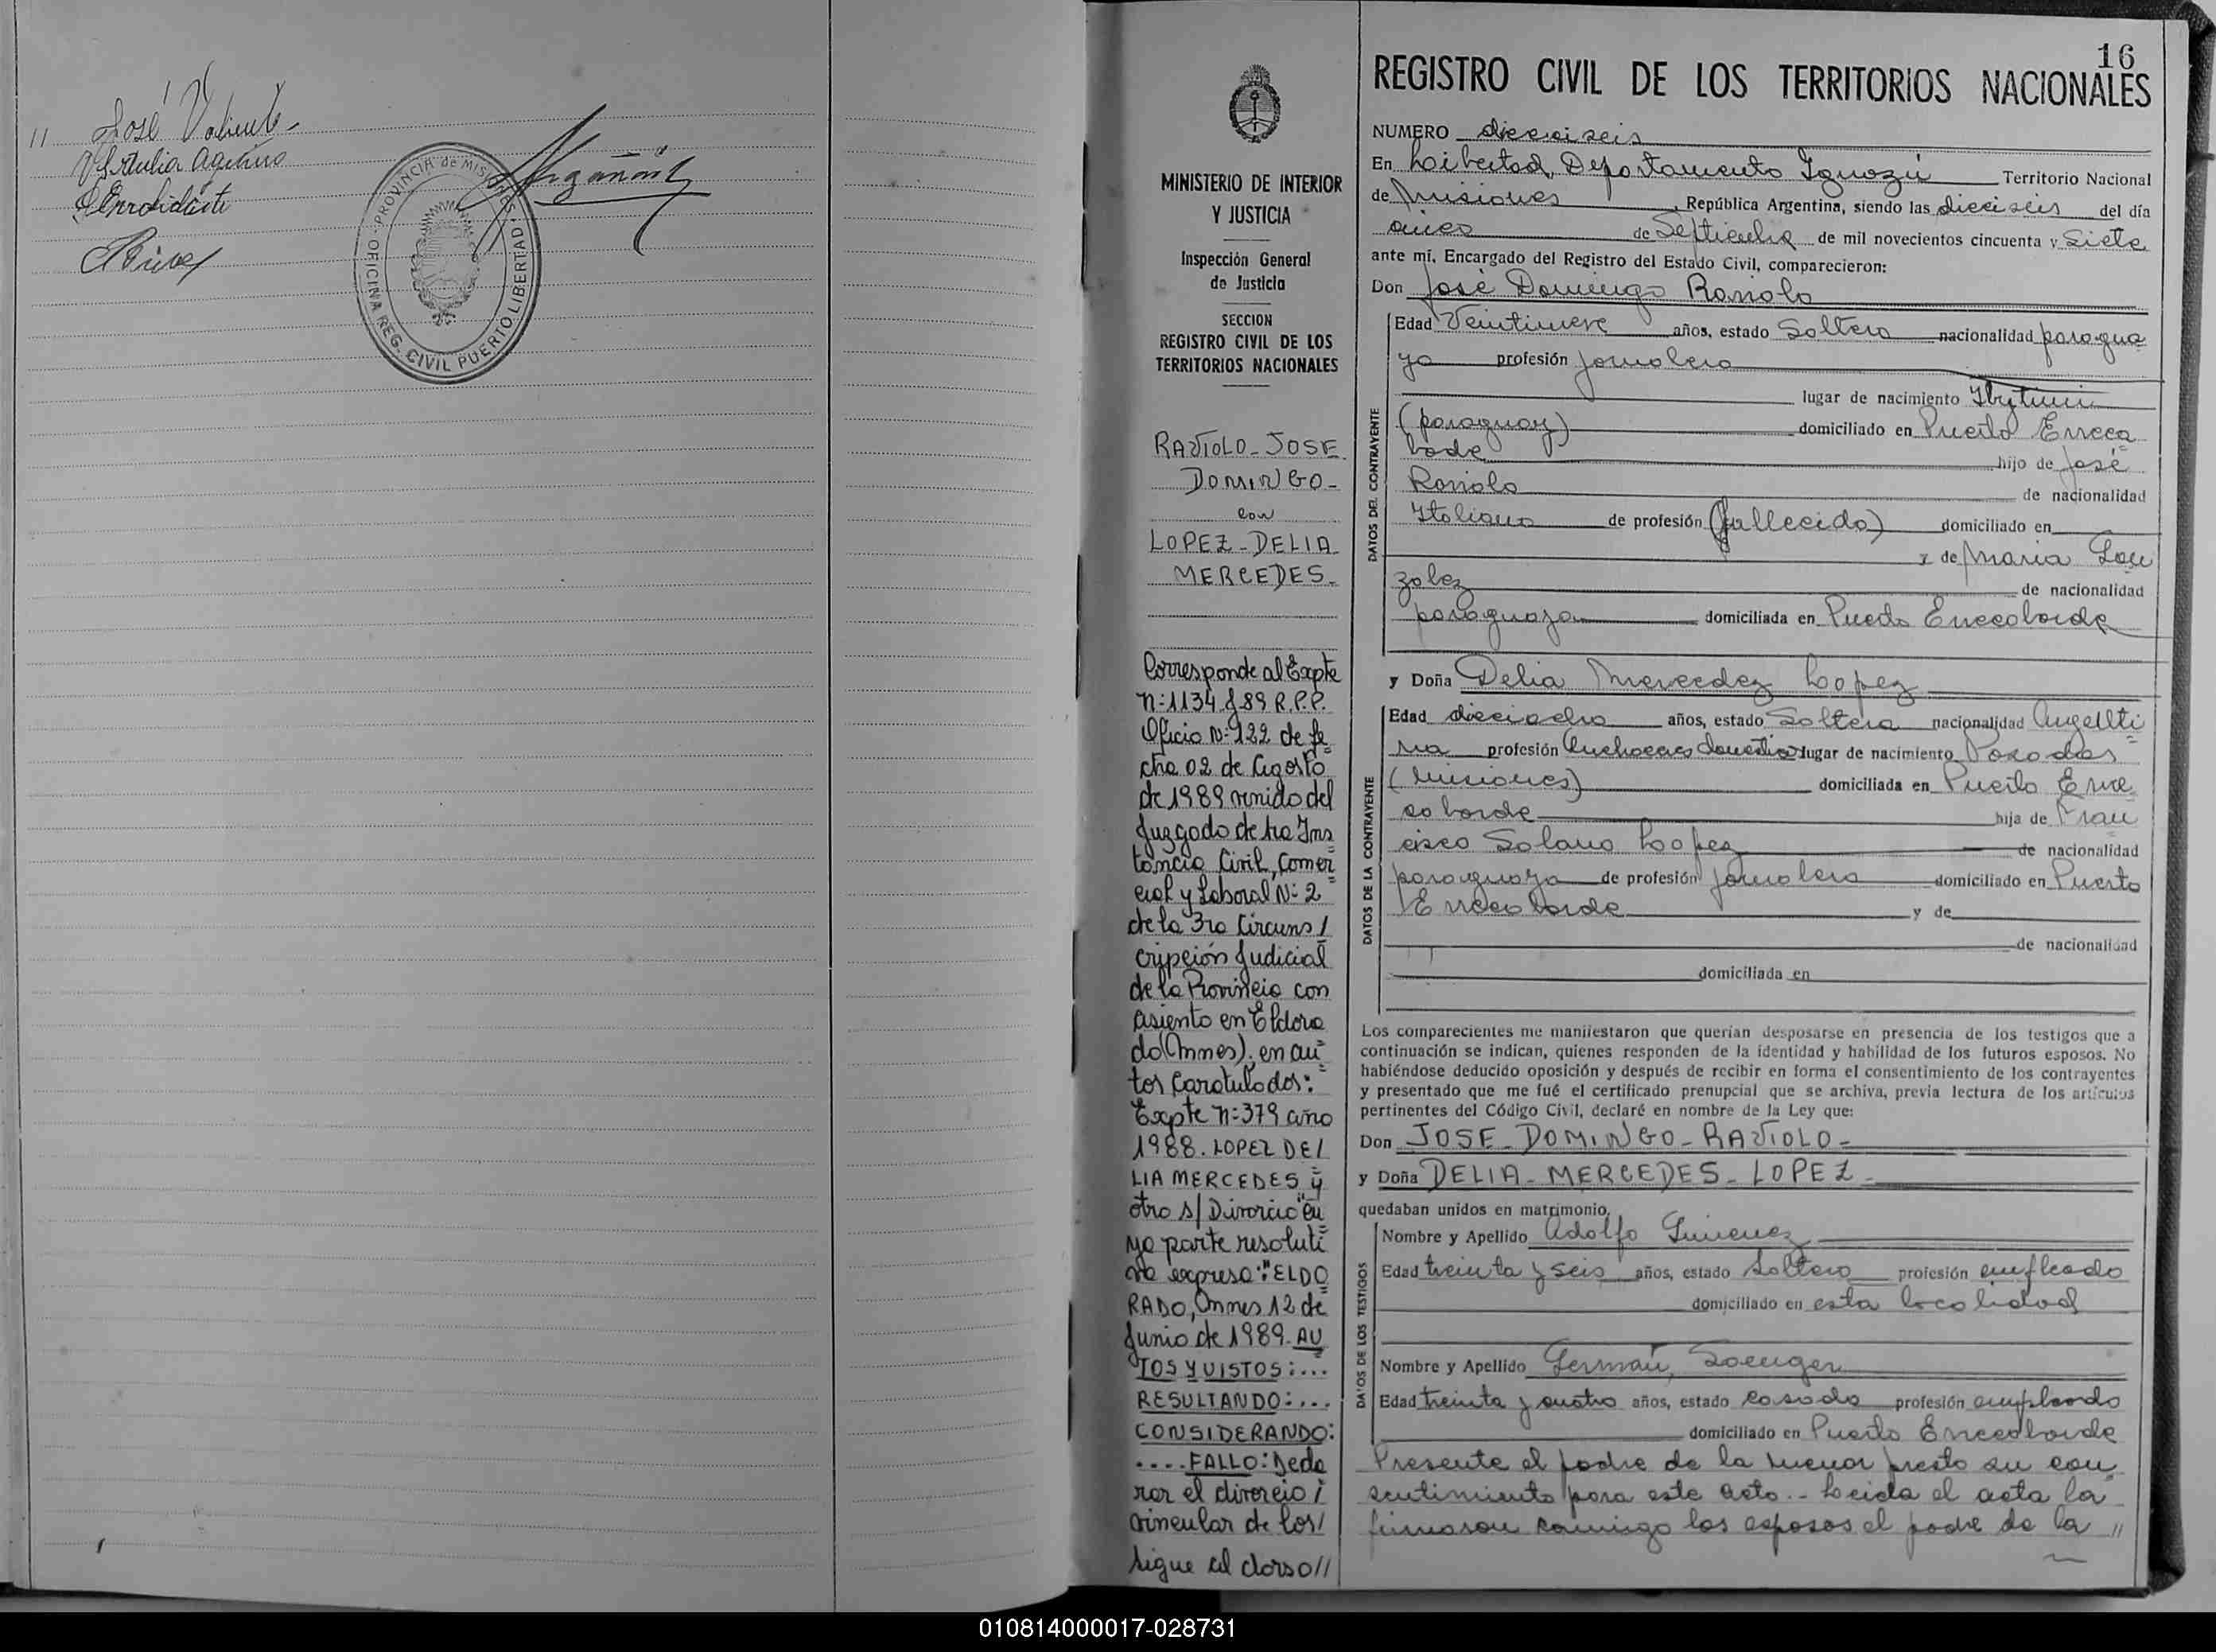 José Valiente
PROVINCIA de MISIONES
OFICINA REG. CIVIL PUERTO LIBERTAD
16
REGISTRO CIVIL DE LOS TERRITORIOS NACIONALES
MINISTERIO DE INTERIOR
Y JUSTICIA
Inspección General
de Justicia
SECCION
REGISTRO CIVIL DE LOS
TERRITORIOS NACIONALES
RAVIOLO-JOSE
DOMINGO-
con
LOPEZ-DELIA
MERCEDES-
Corresponde al Expte
n:1134-J-89 R.P.P.
Oficio N:922 de fe=
cha 02 de Agosto
de 1989 venido del
Juzgado de 1ra Ins=
tancia Civil, Comer=
cial y Laboral N:2
de la 3ra Circuns/
cripción Judicial
de la Provincia con
asiento en Eldora
do (Mnes), en au=
tos caratulados:
Expte n:379 año
1988. LOPEZ DE/
LIA MERCEDES y
otro s/Divorcio cu=
ya parte resoluti=
va expresa: "ELDO=
RADO, Mnes 12 de
Junio de 1989. AU=
TOS Y VISTOS:...
RESULTANDO:...
CONSIDERANDO:
....FALLO: Decla
rar el divorcio /
vincular de los/
sigue al dorso//
NUMERO dieciseis
En Libertad, Departamento Iguazú Territorio Nacional
de Misiones, República Argentina, siendo las dieciseis del día
cinco de Septiembre de mil novecientos cincuenta y siete
ante mí, Encargado del Registro del Estado Civil, comparecieron:
Don José Domingo Raviolo
DATOS DEL CONTRAYENTE
Edad Veintinueve años, estado Soltero nacionalidad paragua
ya profesión Jornalero
lugar de nacimiento Ybytimi
(paraguay) domiciliado en Puerto Erreca=
borde hijo de José
Raviolo de nacionalidad
Italiana de profesión (fallecido) domiciliado en
y de Maria Gon
zalez de nacionalidad
paraguaya domiciliada en Puerto Errecaborde
y Doña Delia Mercedez Lopez
DATOS DE LA CONTRAYENTE
Edad dieciocho años, estado Soltera nacionalidad Argenti=
na profesión Quehaceres domestico lugar de nacimiento Posadas
(Misiones) domiciliada en Puerto Erre
caborde hija de Fran
cisco Solano Lopez de nacionalidad
paraguaya de profesión Jornalero domiciliado en Puerto
Errecaborde y de
de nacionalidad
domiciliada en
Los comparecientes me manifestaron que querían desposarse en presencia de los testigos que a
continuación se indican, quienes responden de la identidad y habilidad de los futuros esposos. No
habiéndose deducido oposición y después de recibir en forma el consentimiento de los contrayentes
y presentado que me fué el certificado prenupcial que se archiva, previa lectura de los artículos
pertinentes del Código Civil, declaré en nombre de la Ley que:
Don JOSE-DOMINGO-RAVIOLO-
y Doña DELIA-MERCEDES-LOPEZ-
quedaban unidos en matrimonio.
DATOS DE LOS TESTIGOS
Nombre y Apellido Adolfo Gimenez
Edad treinta y seis años, estado Soltero profesión empleado
domiciliado en esta localidad
Nombre y Apellido Germán
Edad treinta y cuatro años, estado casado profesión empleado
domiciliado en Puerto Errecaborde
Presente el padre de la menor presto su con
sentimiento para este acto.- Leida el acta la
firmaron conmigo los esposos el padre de la //
010814000017-028731